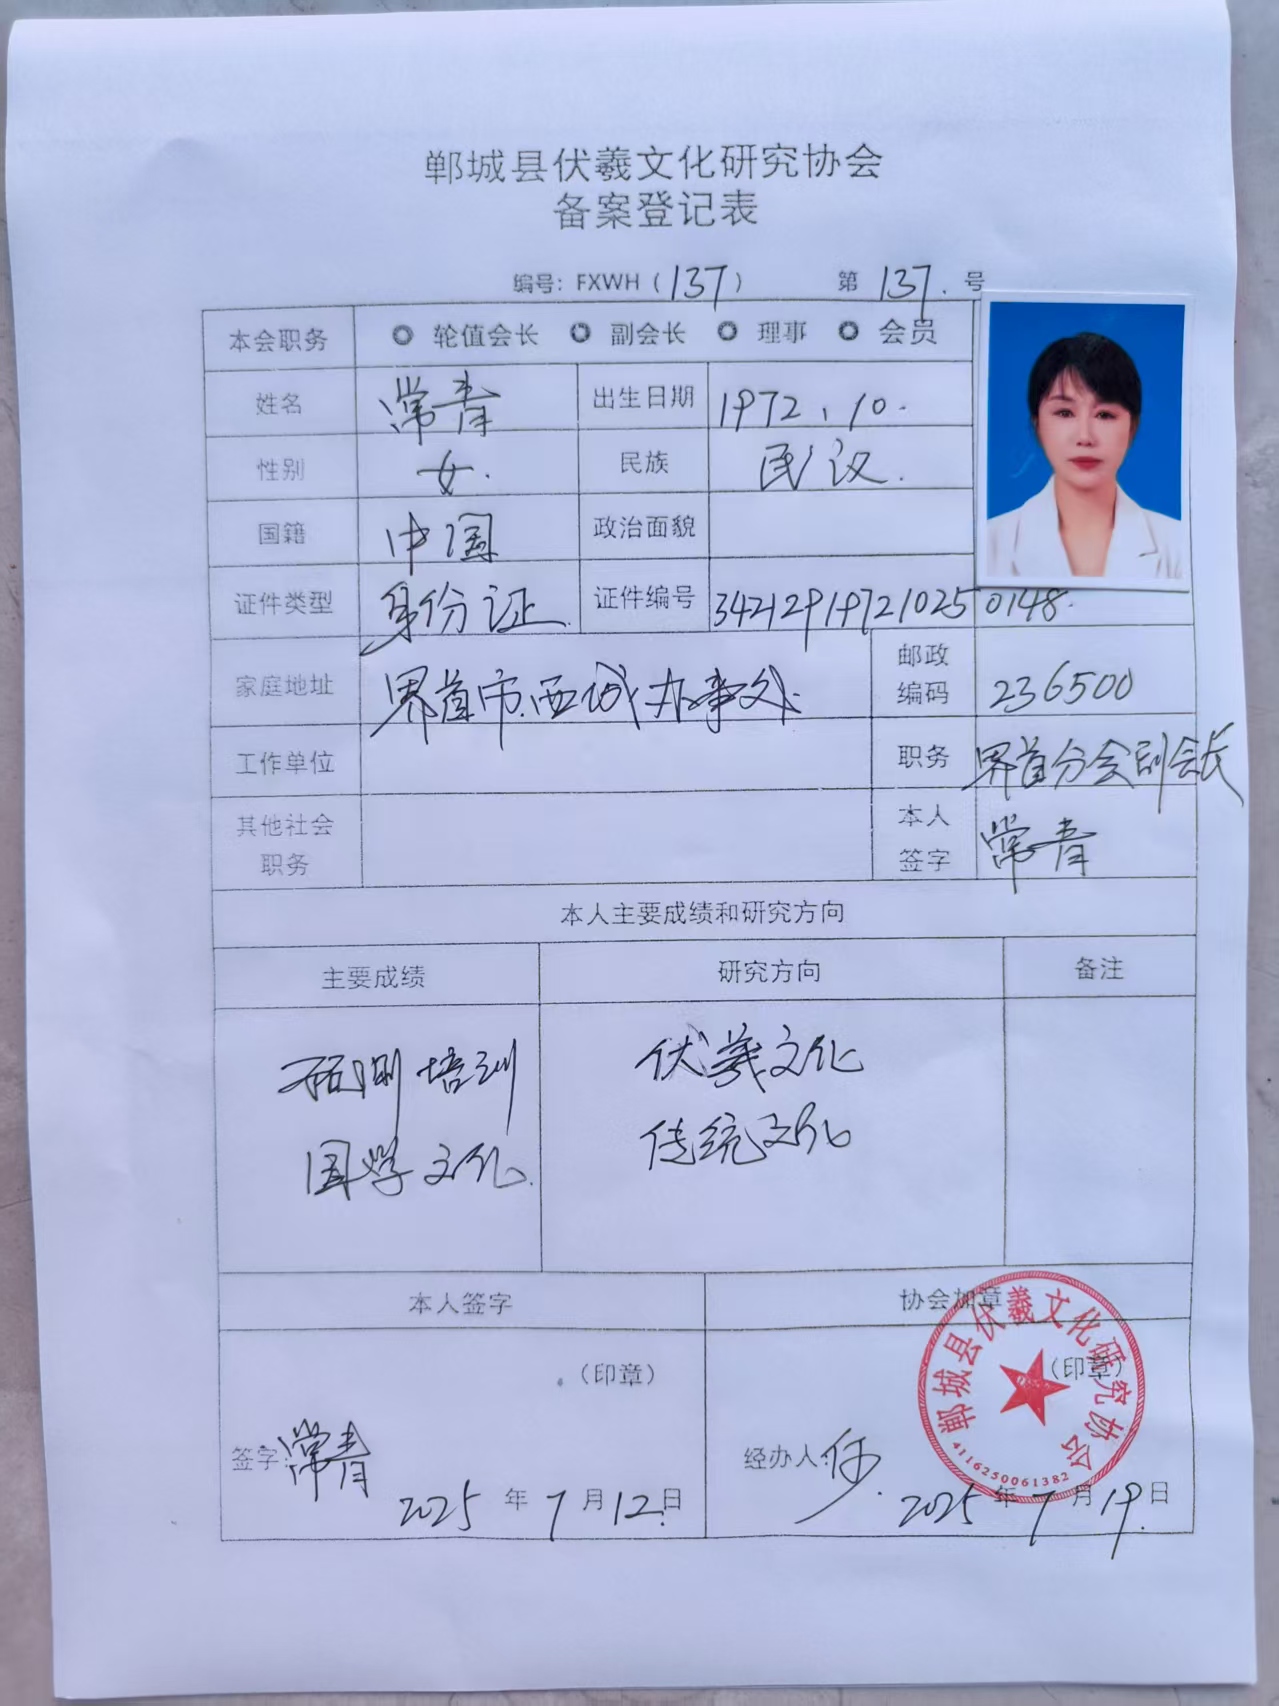 郸城县伏羲文化研究协会
备案登记表
编号：FXWH（137） 第 137. 号
本会职务 轮值会长 副会长 理事 会员
姓名 常青 出生日期 1972、10.
性别 女. 民族 民汉.
国籍 中国 政治面貌
证件类型 身份证. 证件编号 342129197210250148.
家庭地址 界首市.西城办事处. 邮政编码 236500
工作单位 职务 界首分会副会长
其他社会职务 本人签字 常青
本人主要成绩和研究方向
主要成绩 研究方向 备注
预测培训 伏羲文化
国学文化. 传统文化
本人签字 协会加章
（印章） （印章）
签字: 常青 经办人:
2025 年 7 月 12 日 2025 年 7 月 19 日
郸城县伏羲文化研究协会
4116250061382